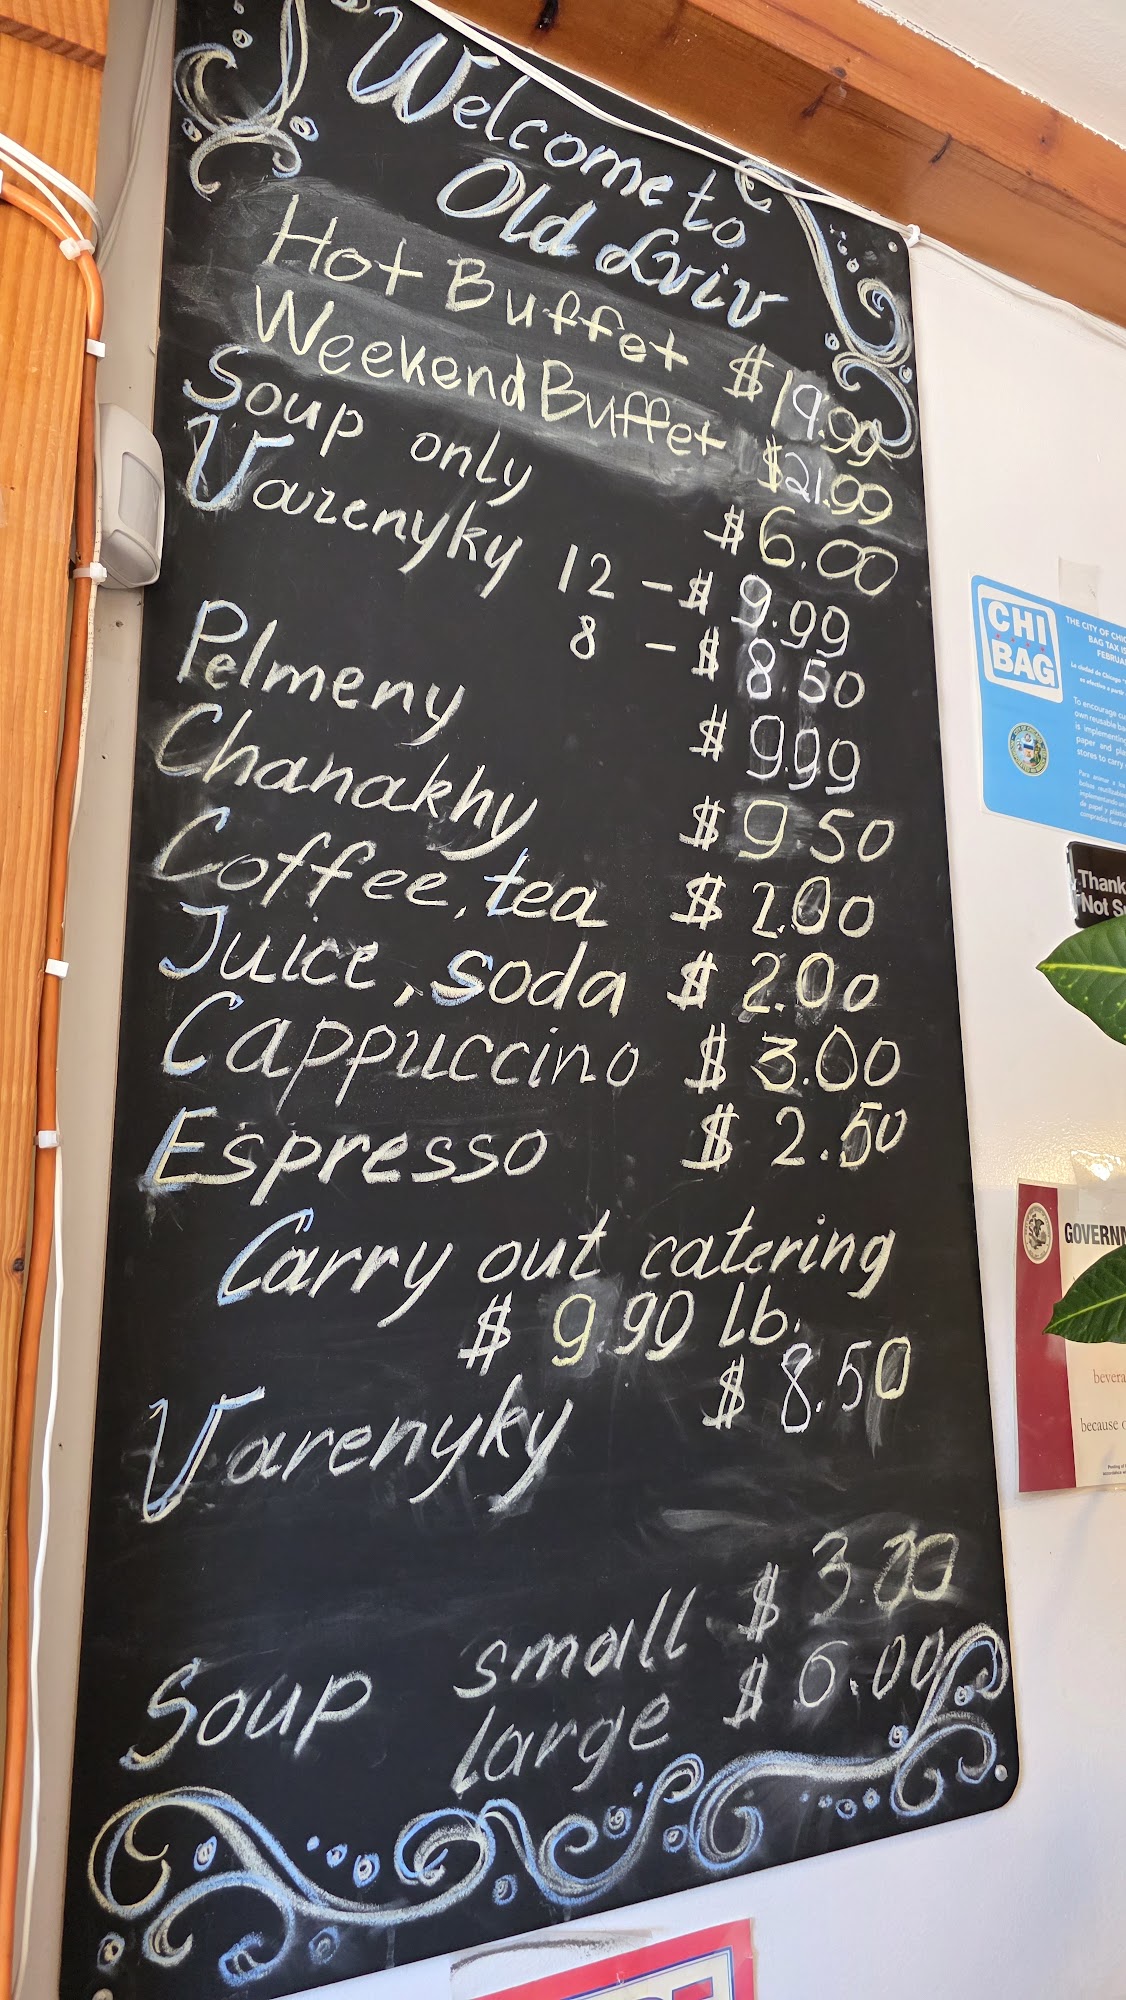 Welcome to
Old Lviv
Hot Buffet $19.99
Weekend Buffet $21.99
Soup only $6.00
Varenyky 12 - $ 9.99
8 - $ 8.50
Pelmeny $ 9.99
Chanakhy $ 9.50
Coffee, tea $ 2.00
Juice, soda $ 2.00
Cappuccino $ 3.00
Espresso $ 2.50
Carry out catering
$ 9.90 lb.
Varenyky $ 8.50
Soup small $ 3.00
large $ 6.00
CHI
BAG
THE CITY OF
BAG TAX IS
To encourage
own reusable
is implementing
paper and
stores to carry
Thank
Not
GOVERNM
because